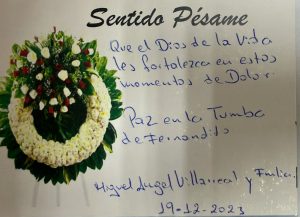 Sentido Pésame
Que el Dios de la Vida
les fortalezca en estos
momentos de Dolor.
Paz en la Tumba
de Fernandito
Miguel Angel Villarreal y Familia
19-12-2023